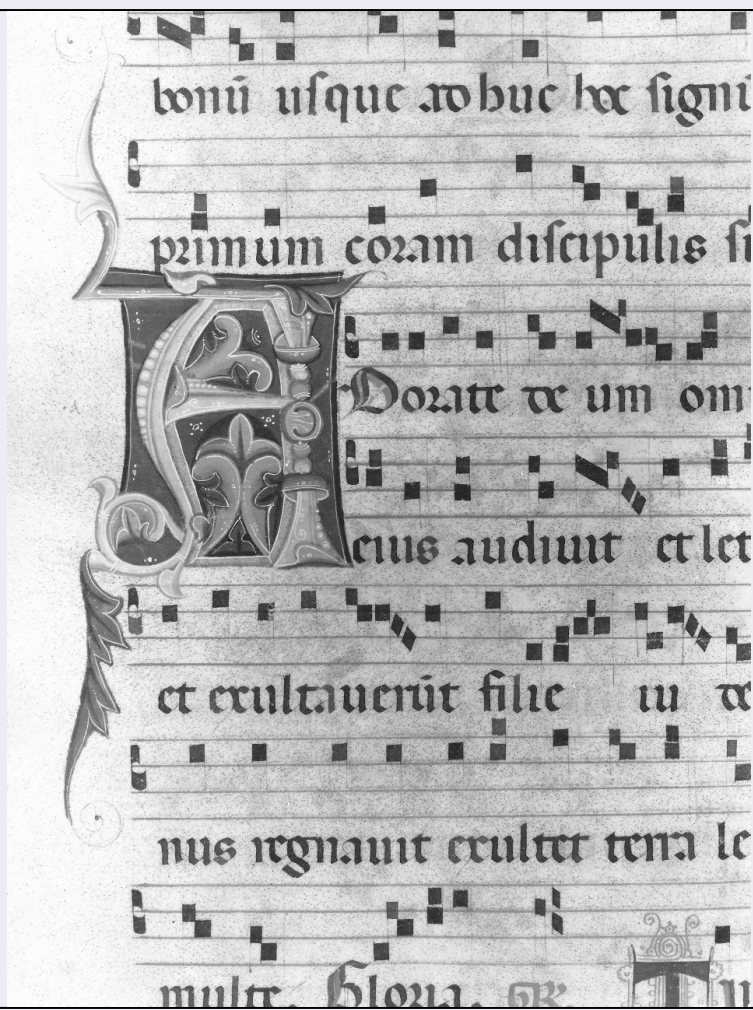 bonū usque adhuc hoc signi
primum coram discipulis su
Adorate deum om
eius audiuit et let
et exultauerūt filie iu de
nus regnauit exultet terra le
multe. Gloria. GR. Tu